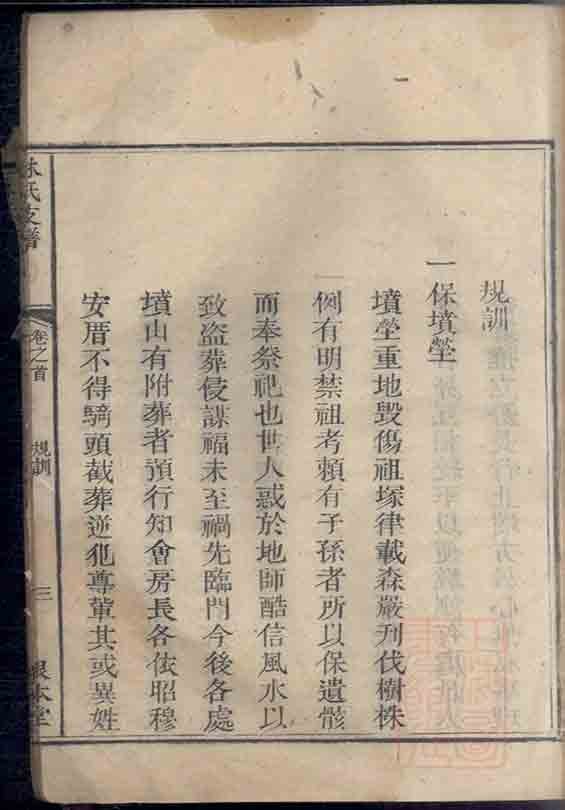 規訓
一保墳塋
墳塋重地毀傷祖塚律載森嚴刋伐樹株
例有明禁祖考賴有子孫者所以保遺骸
而奉祭祀也世人惑於地師酷信風水以
致盜葬侵謀福未至禍先臨門今後各處
墳山有附葬者預行知會房長各依昭穆
安厝不得騎頭截葬逆犯尊輩其或異姓
林氏支譜
卷之首
規訓
三
根本堂